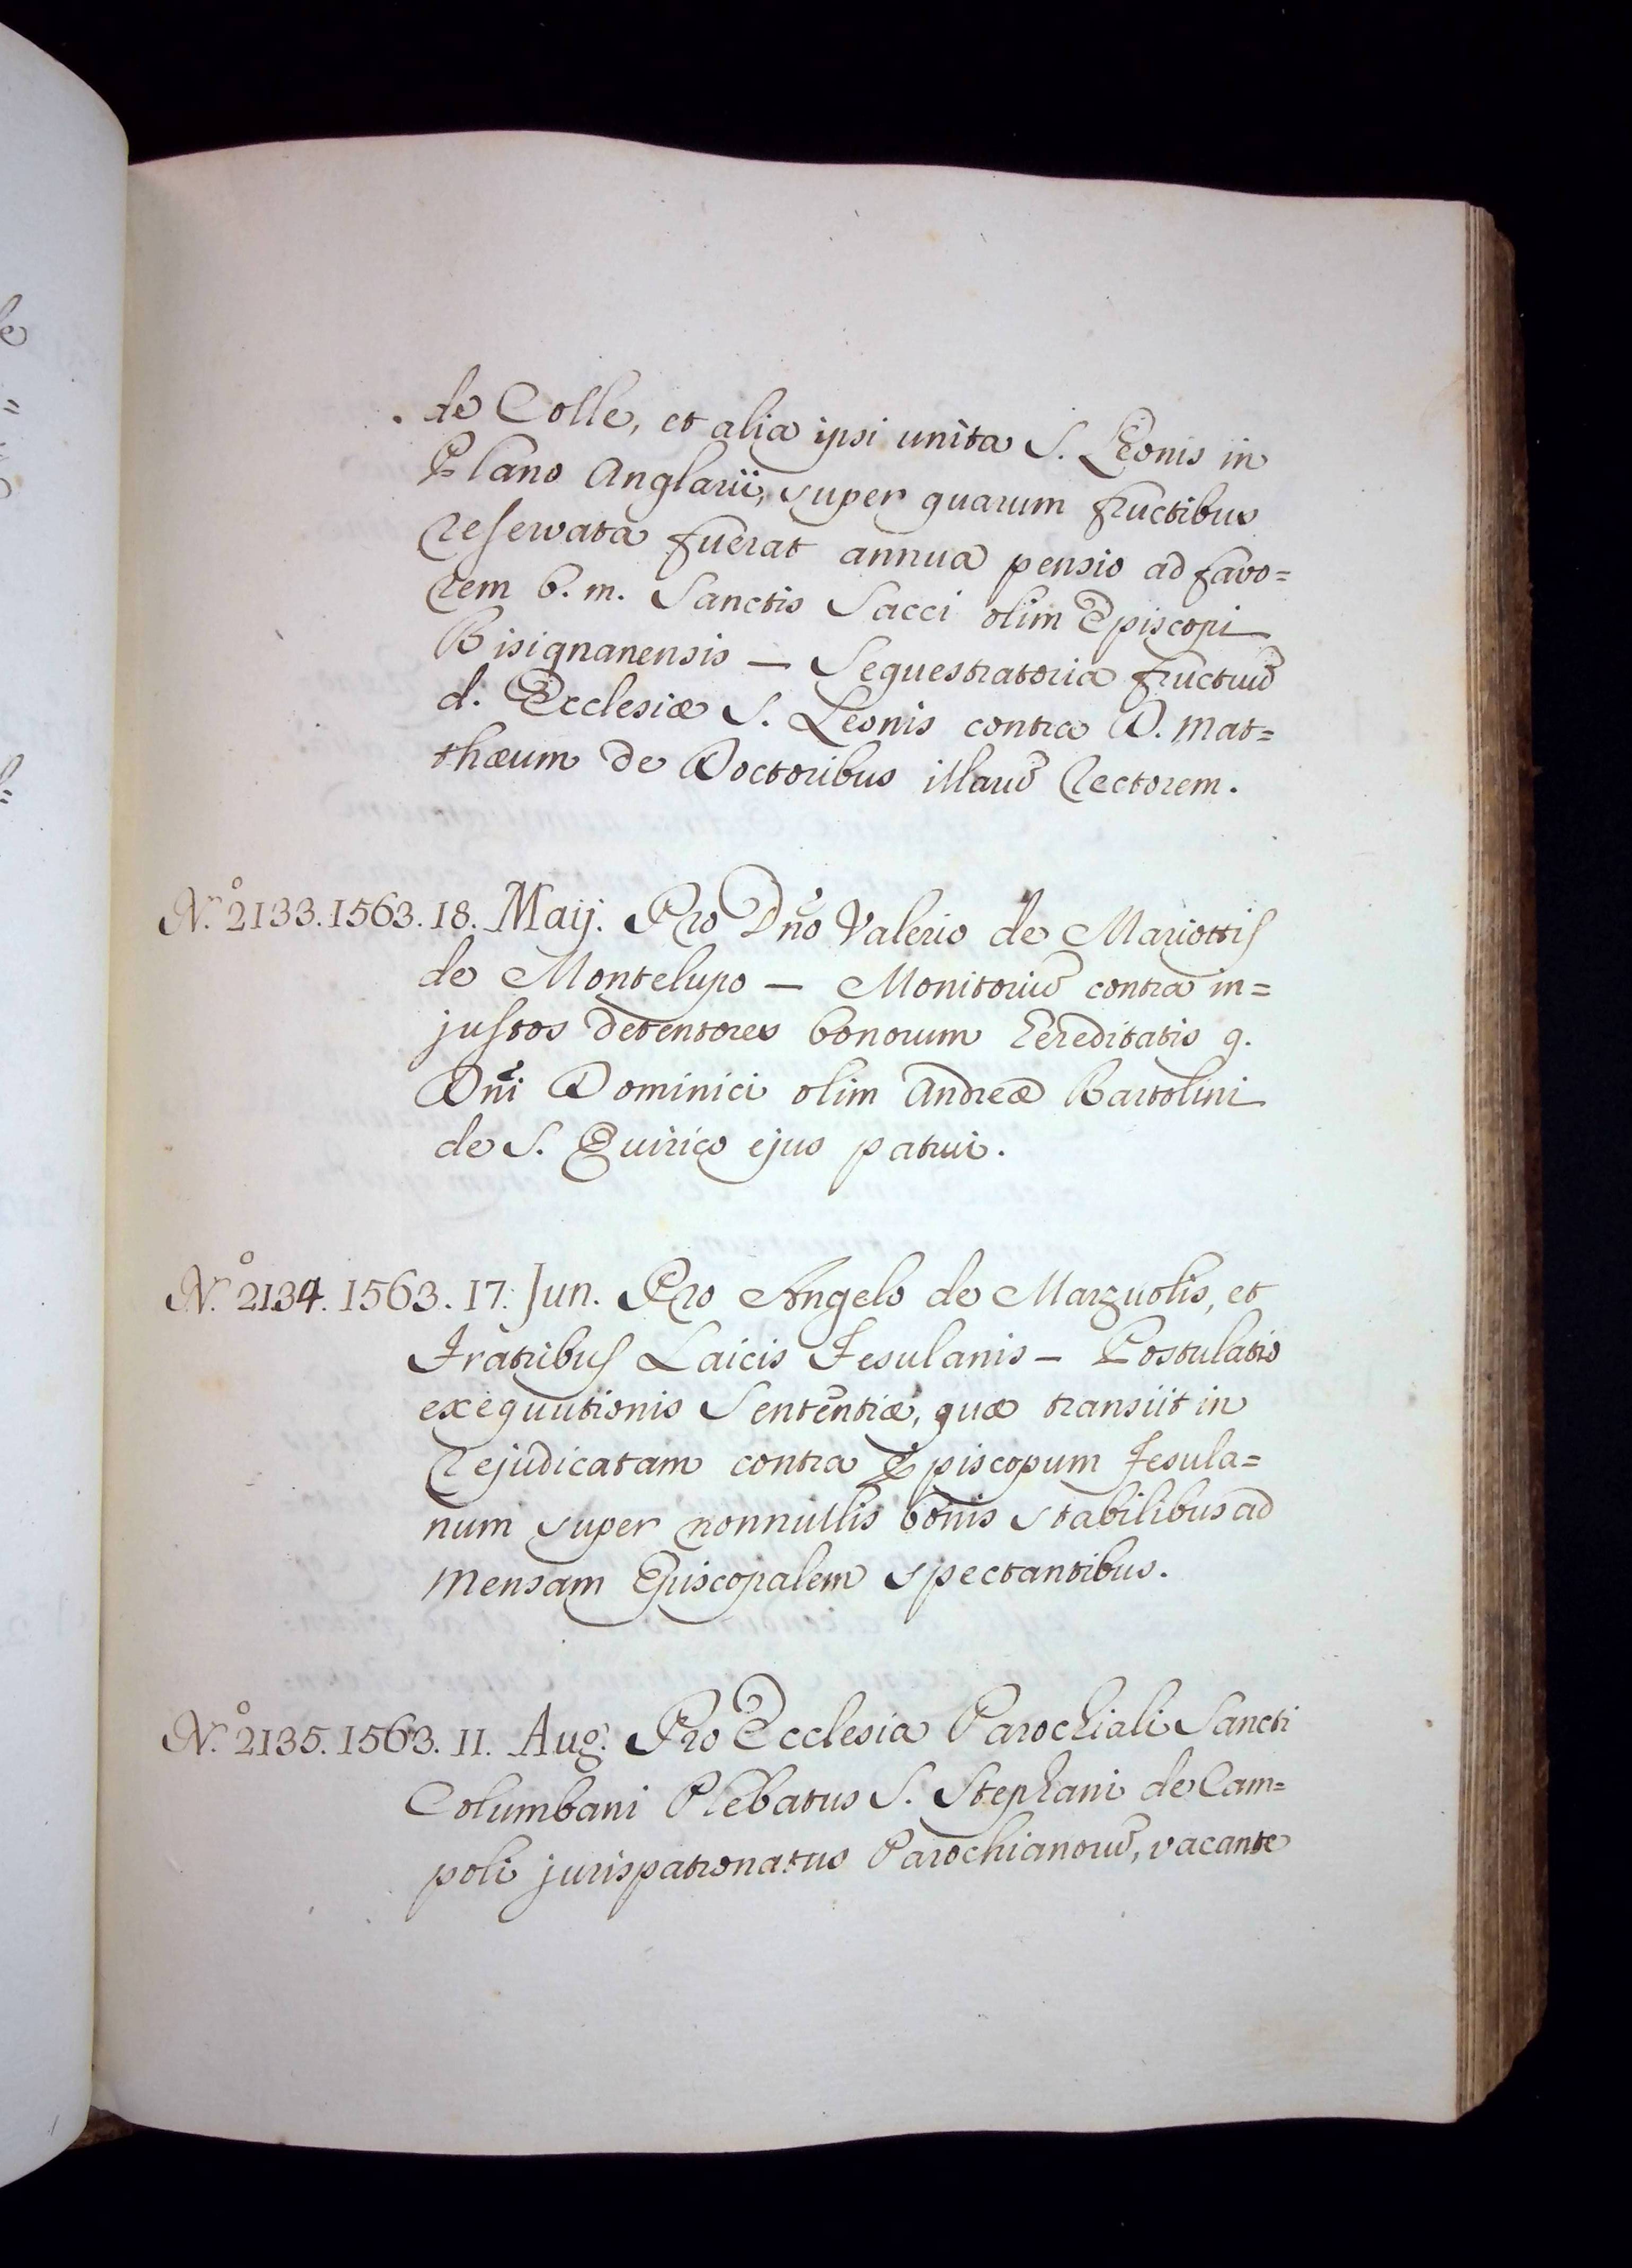 de Colle, et alia ipsi unita S. Leonis in
Plano Anglarii, super quarum fructibus
reservata fuerat annua pensio ad favo=
rem b. m. Sanctis Sacci olim Episcopi
Bisignanensis — Sequestratoria fructuū
d. Ecclesiæ S. Leonis contra D. Mat=
thæum de Doctoribus illarū Rectorem.
N.º 2133. 1563. 18. Maij. Pro Dño Valerio de Mariottis
de Montelupo — Monitoriū contra in=
justos detentores bonorum hereditatis q.
Dñi Dominici olim Andreæ Bartolini
de S. Quirico ejus patrui.
N.º 2134. 1563. 17. Jun. Pro Angelo de Marzuolis, et
Fratribus Laicis Fesulanis — Postulatio
exequutionis Sententiæ, quæ transiit in
rejudicatam contra Episcopum Fesula=
num super nonnullis bonis stabilibus ad
Mensam Episcopalem spectantibus.
N.º 2135. 1563. 11. Aug. Pro Ecclesia Parochiali Sancti
Columbani Plebatus S. Stephani de Cam=
poli jurispatronatus Parochianorū, vacante